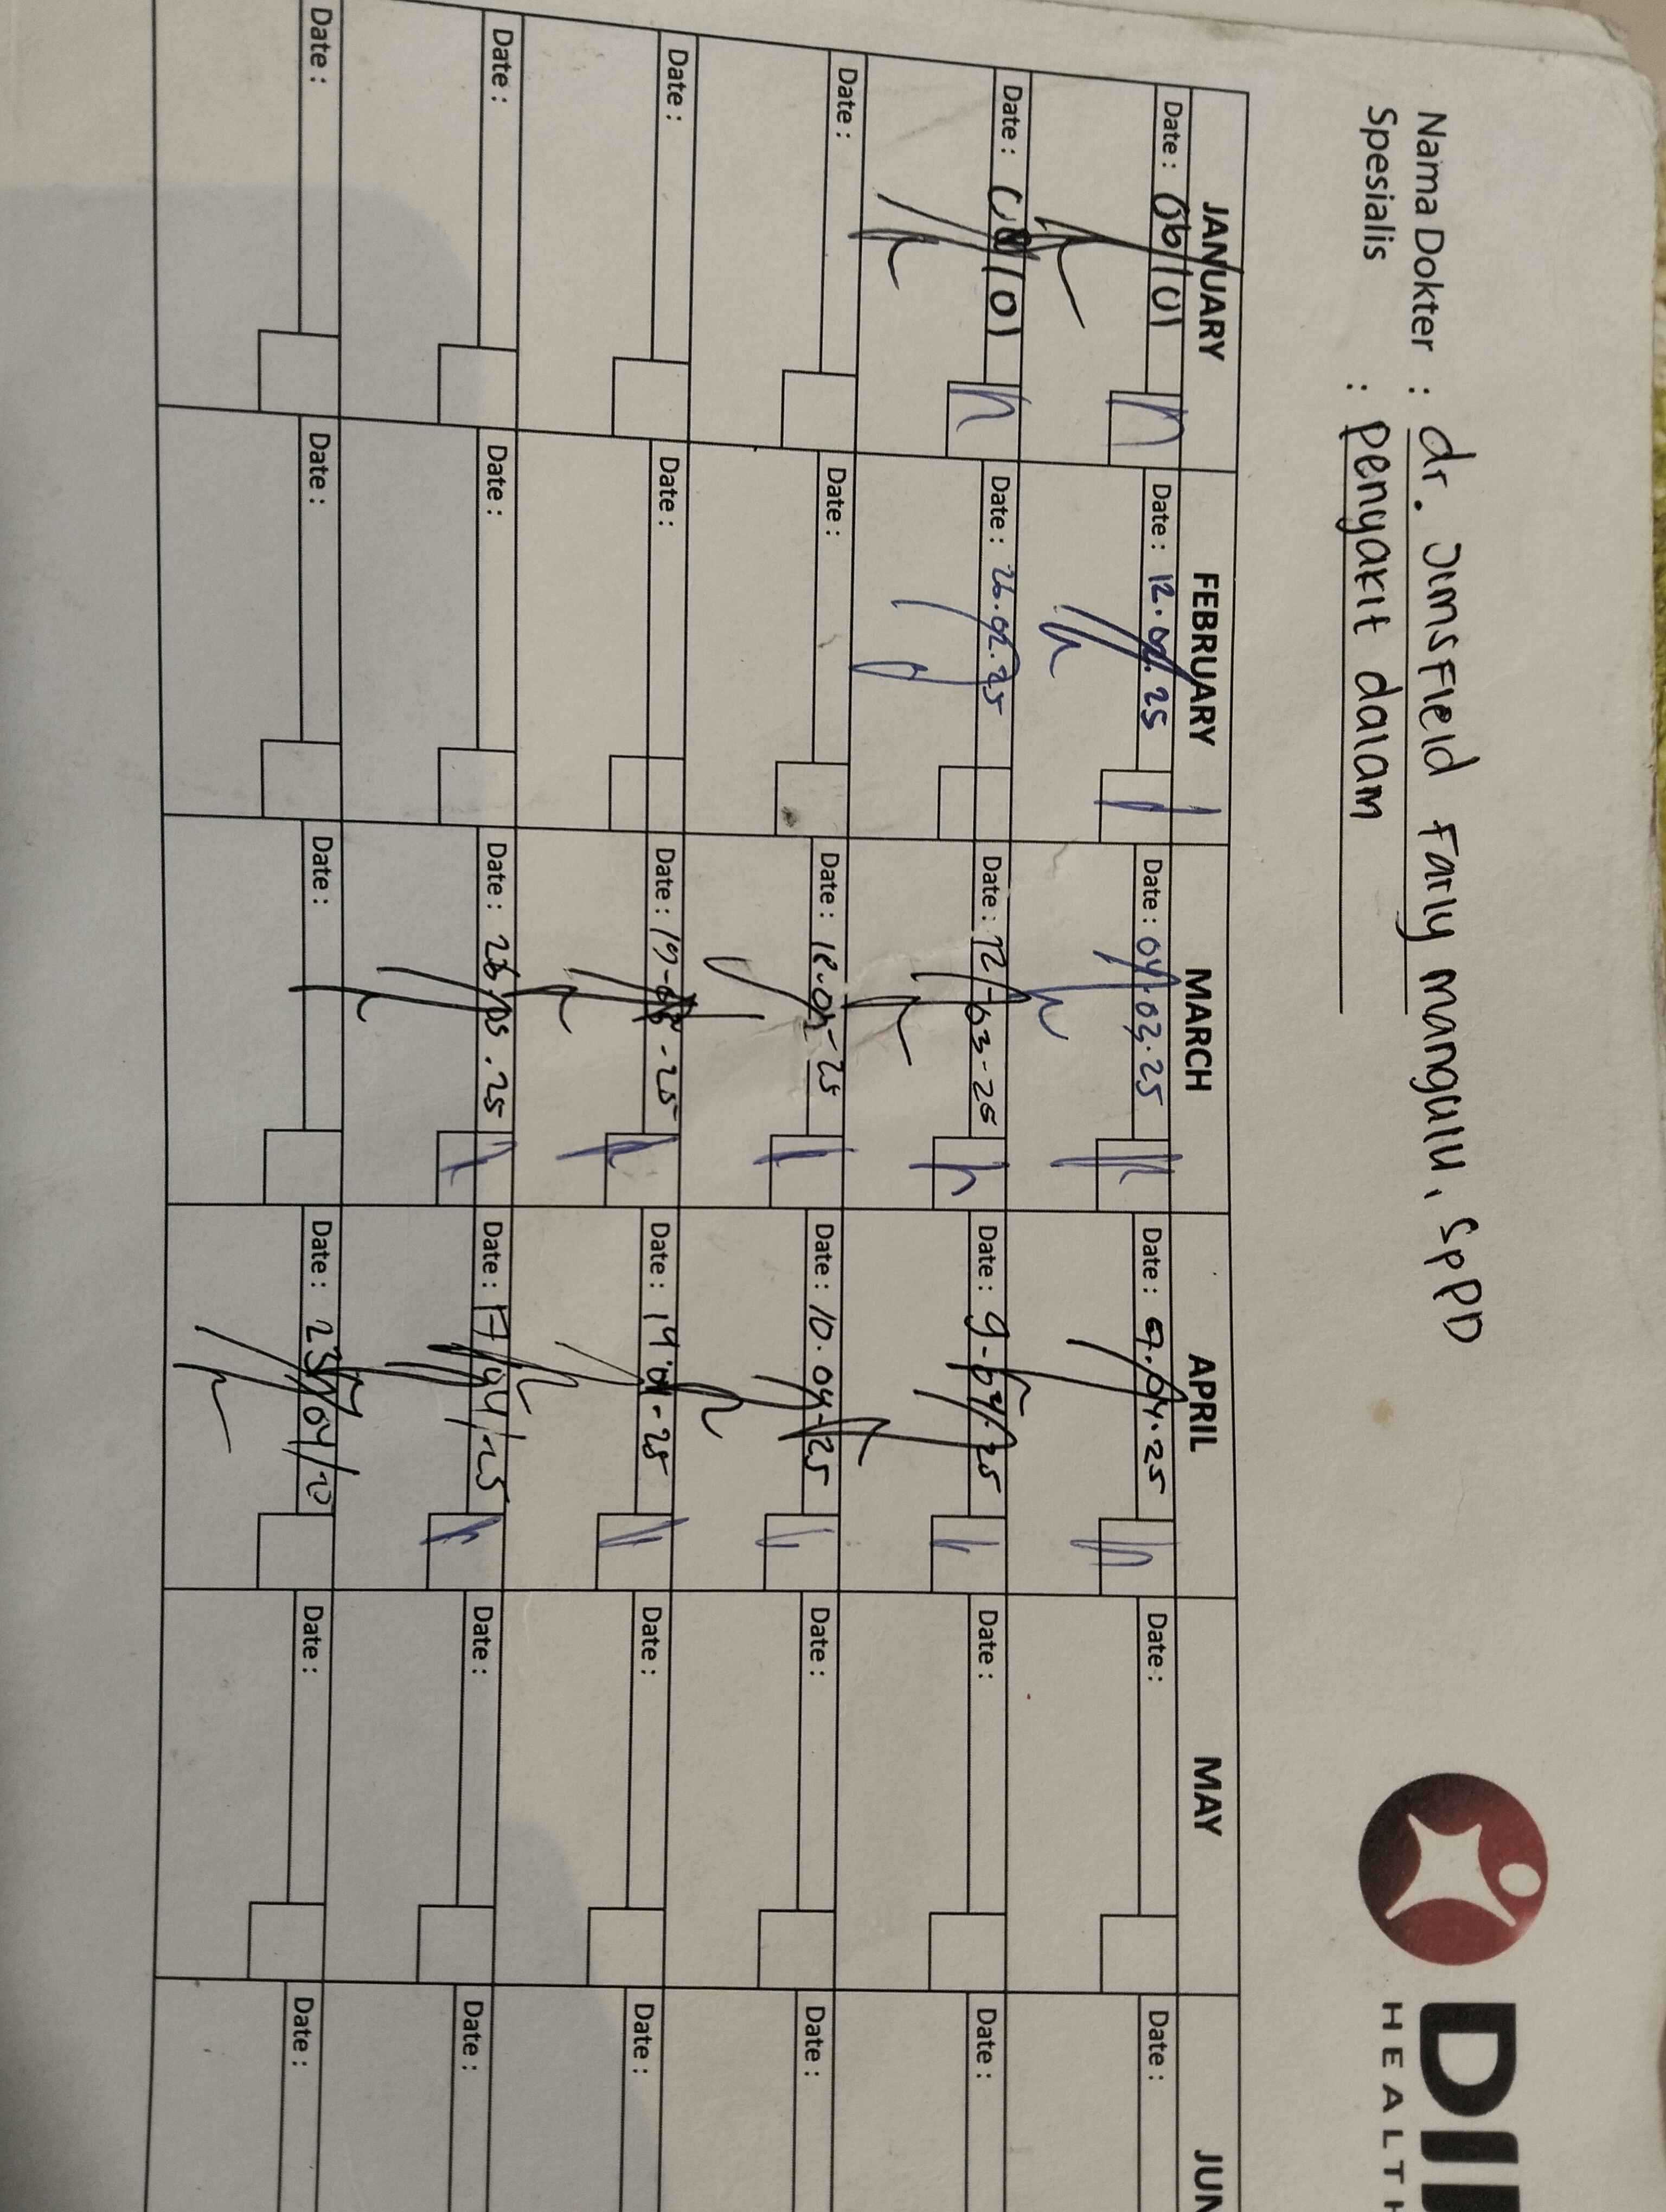 Nama Dokter : dr. Jimsfield Farly mangalu, SpPD
Spesialis : penyakit dalam
HEALTH
JANUARY FEBRUARY MARCH APRIL MAY JUN
Date : 06/01 Date : 12.02.25 Date : 04.03.25 Date : 7.04.25 Date : Date :
Date : 08/01 Date : 26.02.25 Date : 12/-03-25 Date : 9-04-25 Date : Date :
Date : Date : Date : 18.03-25 Date : 10.04-25 Date : Date :
Date : Date : Date : 19-03-25 Date : 14.04-25 Date : Date :
Date : Date : Date : 26/03.25 Date : 17/04/-25 Date : Date :
Date : Date : Date : Date : 23/04/ Date : Date :